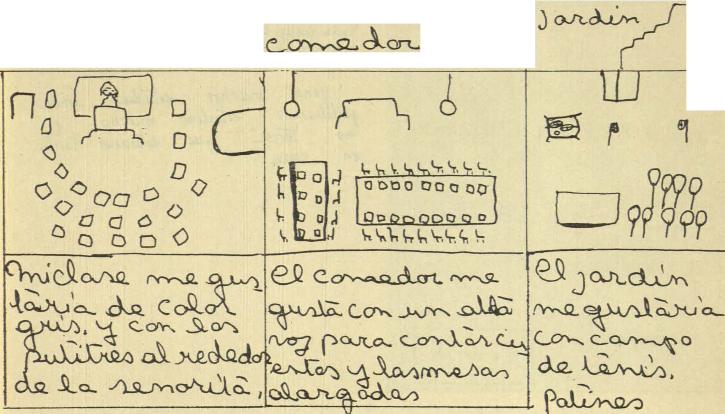 comedor
jardin
Miclase me gus
tària de color
gris, y con los
putitres al rededor
de la senorità,
El comaedor me
gustà con un altà
voz para contàrcu
entos y lasmesas
alargadas
El jardin
me gustària
con campo
de tènis,
Patines